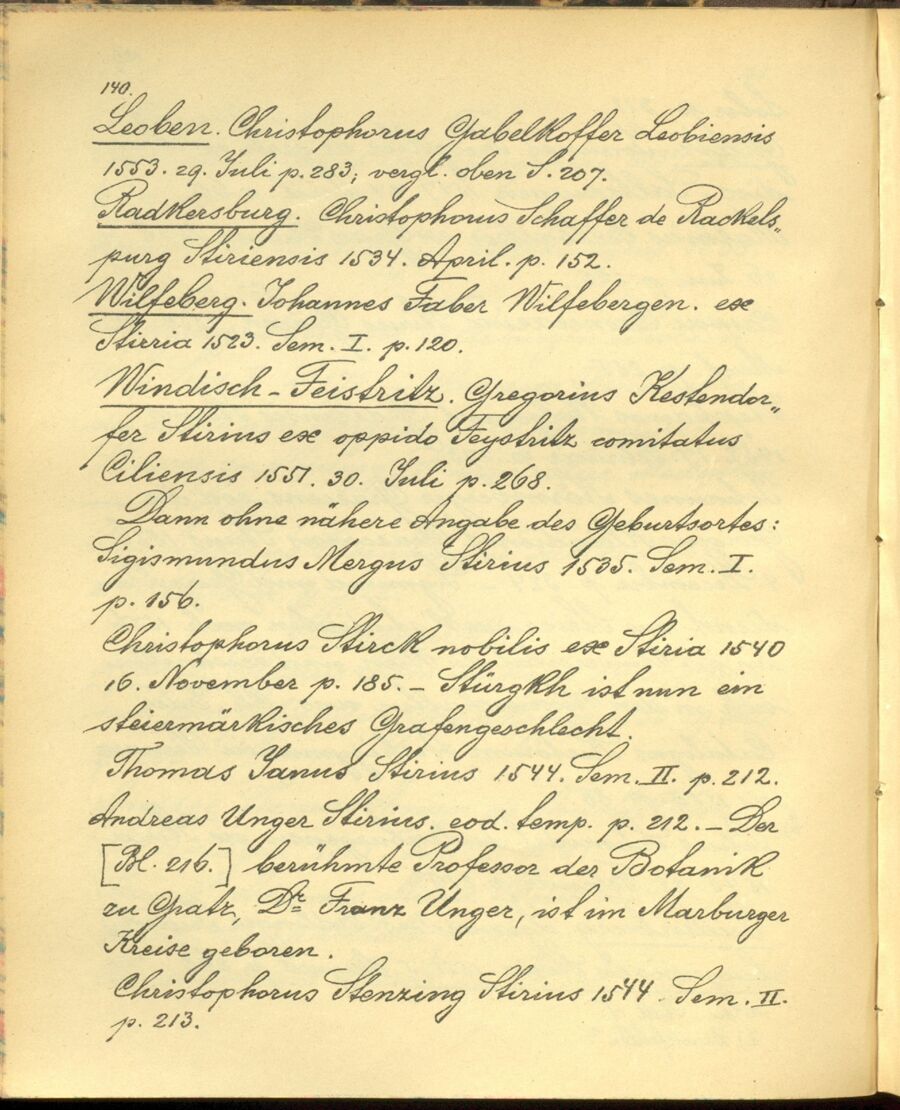 140.
Leoben. Christophorus Gabelkoffer Leobiensis
1553. 29. Juli p. 283; vergl. oben S. 207.
Radkersburg. Christophorus Schaffer de Rackels„
purg Stiriensis 1534. April. p. 152.
Wilfeberg. Johannes Faber Wilfebergen. ex
Stirria 1523. Sem. I. p. 120.
Windisch-Feistritz. Gregorius Kestendor„
fer Stirius ex oppido Feystritz comitatus
Ciliensis 1551. 30. Juli p. 268.
Dann ohne nähere Angabe des Geburtsortes:
Sigismundus Mergus Stirius 1535. Sem. I.
p. 156.
Christophorus Stirck nobilis ex Stiria 1540
16. November p. 185. – Stürgkh ist nun ein
steiermärkisches Grafengeschlecht.
Thomas Janus Stirius 1544. Sem. II. p. 212.
Andreas Unger Stirius. eod. temp. p. 212. – Der
[Bl. 216.] berühmte Professor der Botanik
zu Gratz, Dr Franz Unger, ist im Marburger
Kreise geboren.
Christophorus Stenzing Stirius 1544 Sem. II.
p. 213.